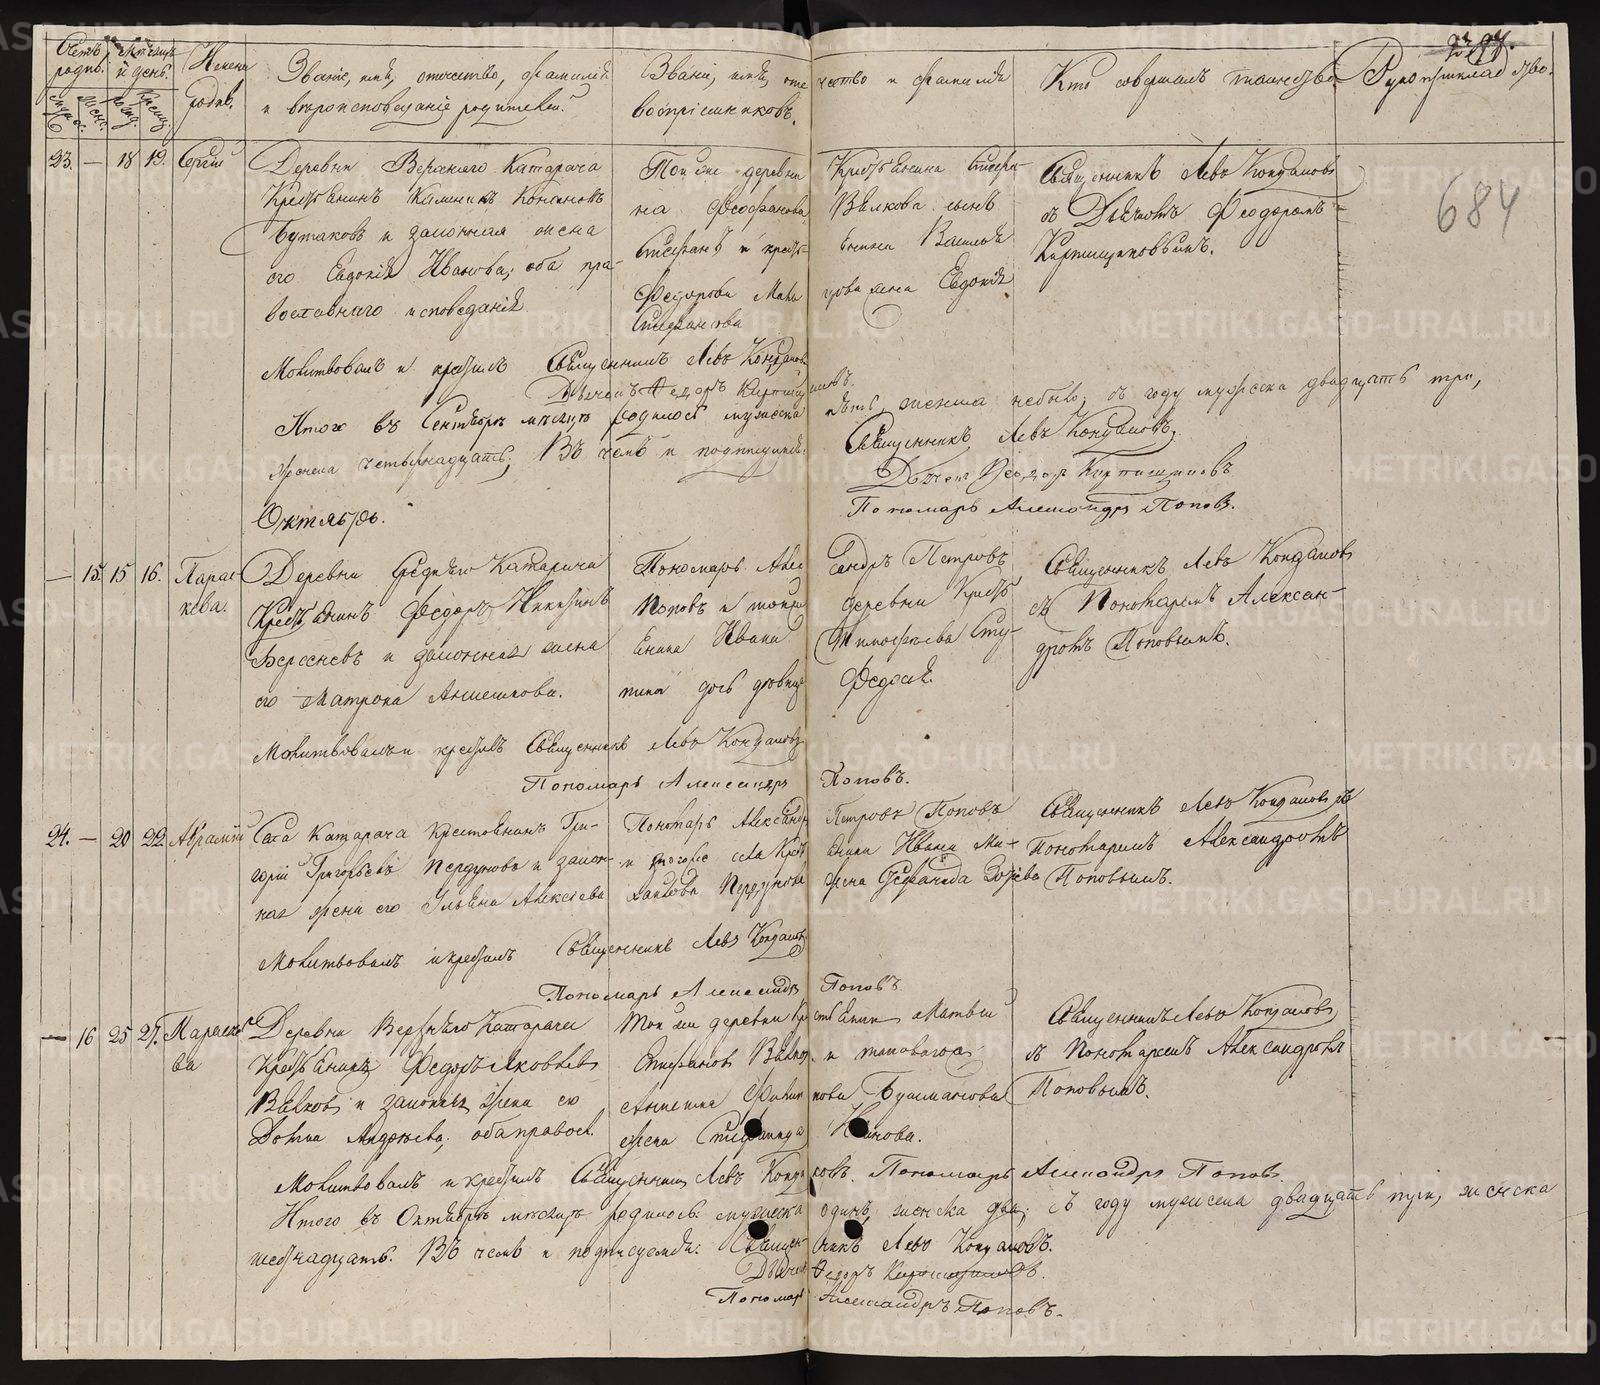 Счетъ родив. Мѣсяцъ и день. Имена родив. Званіе, имя, отчество, фамилія и вѣроисповѣданіе родителей. Званіе, имя, отчество и фамилія воспріемниковъ. Кто совершалъ таинство. Рукоприкладство.
684
23. — 18 19. Сергій
Деревни Верхняго Катарача
Крестьянинъ Каллиникъ Конановъ
Бутаковъ и законная жена
его Евдокія Иванова; оба пра-
вославнаго исповеданія
Той же деревни Крестьянина Стефа-
на Феофанова Вялкова сынъ
Стефанъ и крестьянина Василья
Федорова жена Евдокія
Стефанова
Священникъ Левъ Кондаковъ
съ Дьячкомъ Феодоромъ
Кирпищиковымъ.
Молитвовалъ и крестилъ Священникъ Левъ Кондаковъ
Дьячекъ Федоръ Кирпищиковъ.
Итого въ Сентябрѣ мѣсяцѣ родилось мужеска пять, женска небыло, съ году мужеска двадцать три,
женска четырнадцать; Въ чемъ и подписуемся: Священникъ Левъ Кондаковъ,
Дьячекъ Феодоръ Кирпищиковъ
Пономарь Александръ Поповъ.
Октябрь.
— 15. 15 16. Параскева.
Деревни Средняго Катарача
Крестьянинъ Федоръ Никитинъ
Бересневъ и законная жена
его Матрона
Пономарь Александръ Петровъ
Поповъ и тойже деревни Кресть-
янина Ивана Тимофѣева Сту-
пина дочь девица Федосья.
Священникъ Левъ Кондаковъ
съ Пономаремъ Алексан-
дромъ Поповымъ.
Молитвовалъ и крестилъ Священникъ Левъ Кондаковъ
Пономарь Александръ Поповъ.
24. — 20 22. Аврамій
Села Катарача крестьянинъ Гри-
горій Григорьевъ Пердуновъ и закон-
ная жена его Ульяна Алексѣева
Пономарь Александръ Петровъ Поповъ
и тогоже села Крестьянина Ивана Ми-
хайлова Пердунова жена Зотѣева
Священникъ Левъ Кондаковъ съ
Пономаремъ Александромъ
Поповымъ.
Молитвовалъ и крестилъ Священникъ Левъ Кондаковъ
Пономарь Александръ Поповъ
— 16 25 27. Параскева
Деревни Верхняго Катарача
Крестьянинъ Федоръ Яковлевъ
Вялковъ и законная жена его
Домна Андреева; оба правосл.
Той же деревни Крестьянинъ Матвей
Стефановъ Вялковъ и таковагоже
Бушманова
жена
Священникъ Левъ Кондаковъ
съ Пономаремъ Александромъ
Поповымъ.
Молитвовалъ и крестилъ Священникъ Левъ Кондаковъ. Пономарь Александръ Поповъ.
Итого въ Октябрѣ мѣсяцѣ родилось: мужеска одинъ, женска два; съ году мужеска двадцать, женска
шестнадцать. Въ чемъ и подписуемся: Священникъ Левъ Кондаковъ.
Дьячекъ Федоръ Кирпищиковъ.
Пономарь Александръ Поповъ.
METRIKI.GASO-URAL.RU